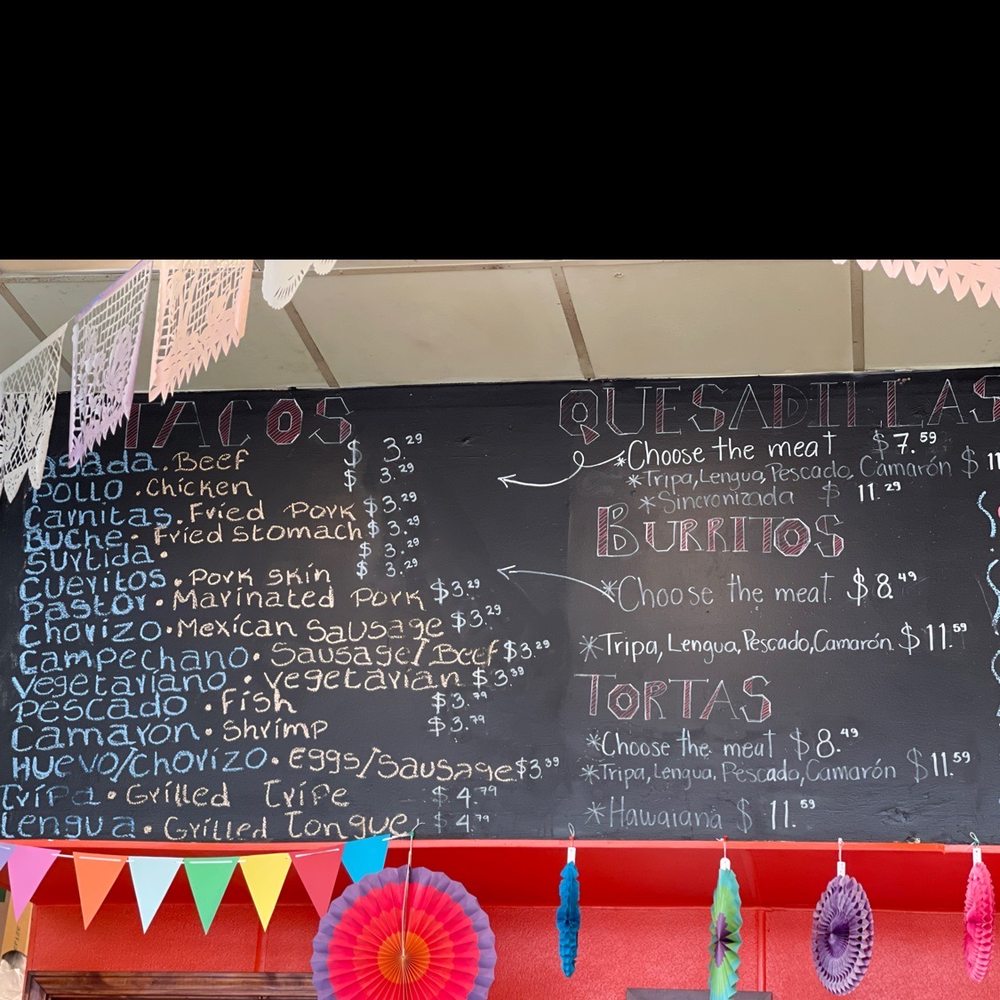 TACOS
asada. Beef $ 3.29
Pollo . Chicken $ 3.29
Carnitas. Fried Pork $3.29
Buche. Fried Stomach $3.29
Surtida . $ 3.29
Cueritos . Pork skin $ 3.29
Pastor . Marinated Pork $3.29
Chorizo. Mexican Sausage $3.29
Campechano. Sausage/Beef $3.29
Vegetariano . Vegetarian $3.99
Pescado . Fish $3.79
Camarón. Shrimp $3.79
Huevo/Chorizo. Eggs/Sausage $3.99
Tripa . Grilled Tripe $4.79
Lengua. Grilled Tongue $4.79
QUESADILLAS
*Choose the meat $7.59
*Tripa, Lengua, Pescado, Camarón $ 11
*Sincronizada $ 11.29
BURRITOS
*Choose the meat $8.49
*Tripa, Lengua, Pescado, Camarón $11.59
TORTAS
*Choose the meat $8.49
*Tripa, Lengua, Pescado, Camarón $11.59
*Hawaiana $ 11.59